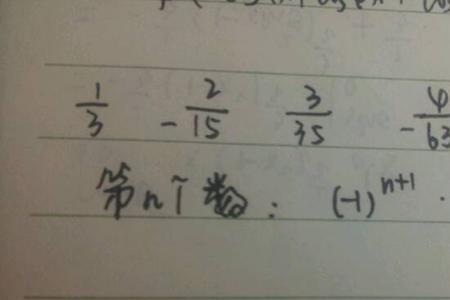 1/3 -2/15 3/35 -4/63
第n个数: (-1)^{n+1} ·